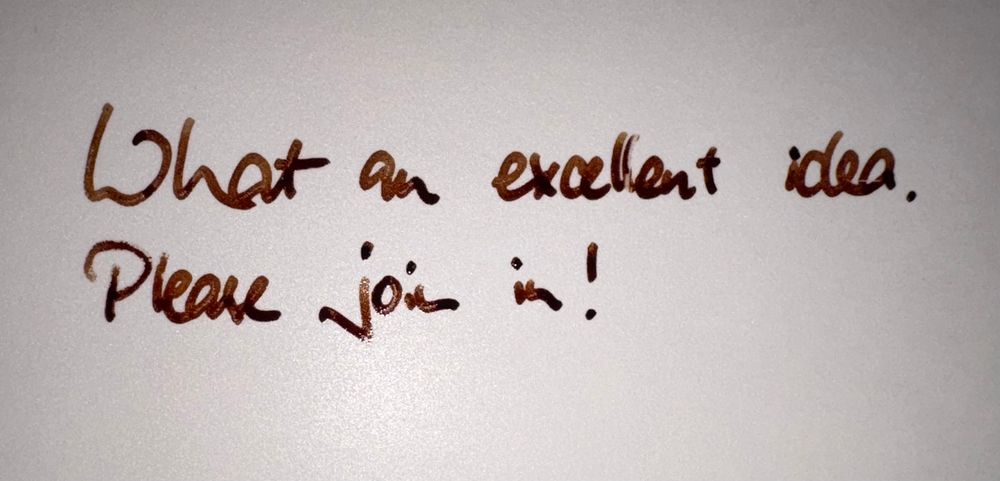 What an excellent idea.
Please join in!